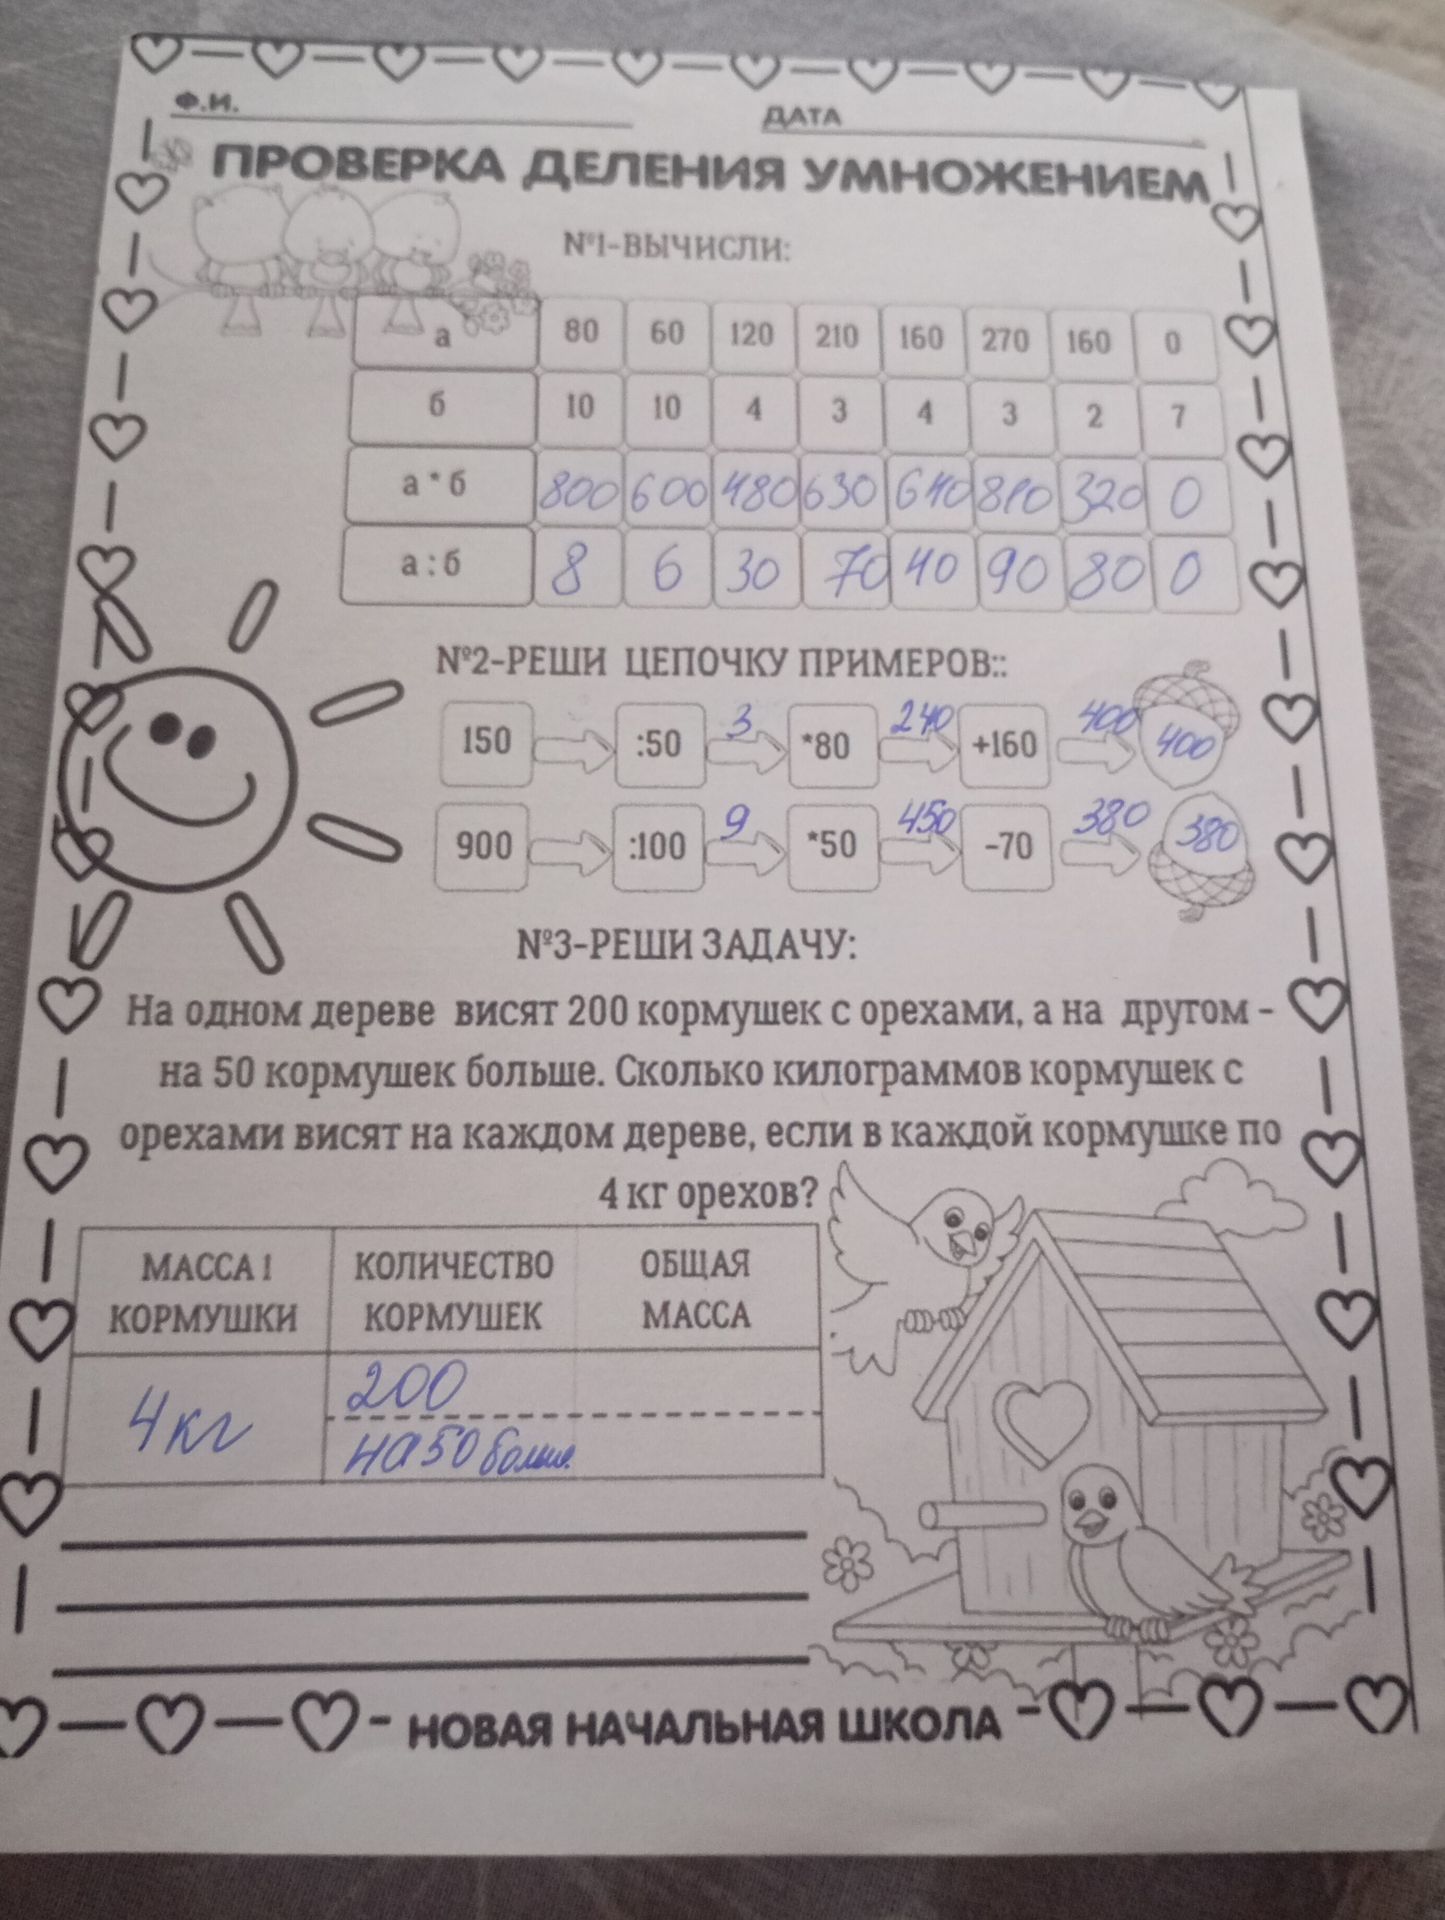 Ф.И. ДАТА
ПРОВЕРКА ДЕЛЕНИЯ УМНОЖЕНИЕМ
№1-ВЫЧИСЛИ:
а 80 60 120 210 160 270 160 0
б 10 10 4 3 4 3 2 7
а * б 800 600 480 630 640 810 320 0
а : б 8 6 30 70 40 90 80 0
№2-РЕШИ ЦЕПОЧКУ ПРИМЕРОВ::
150 :50 3 *80 240 +160 400 400
900 :100 9 *50 450 -70 380 380
№3-РЕШИ ЗАДАЧУ:
На одном дереве висят 200 кормушек с орехами, а на другом -
на 50 кормушек больше. Сколько килограммов кормушек с
орехами висят на каждом дереве, если в каждой кормушке по
4 кг орехов?
МАССА 1 КОЛИЧЕСТВО ОБЩАЯ
КОРМУШКИ КОРМУШЕК МАССА
4 кг 200
на 50 больш.
- НОВАЯ НАЧАЛЬНАЯ ШКОЛА -